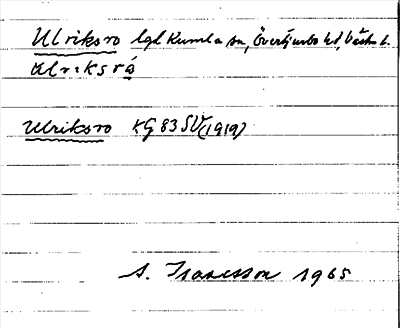 Ulriksro lgd Kumla sn, Övertjurbo hd, Västm l.
ulriksró
Ulriksro KG 83 SV (1919)
S. Isaksson 1965